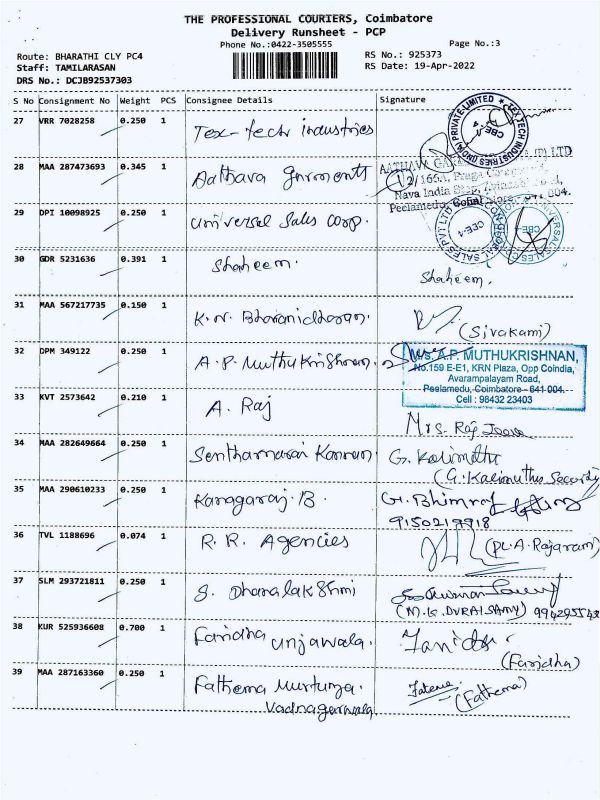 THE PROFESSIONAL COURIERS, Coimbatore
Delivery Runsheet - PCP
Phone No.:0422-3505555
Page No.:3
Route: BHARATHI CLY PC4
RS No.: 925373
Staff: TAMILARASAN
RS Date: 19-Apr-2022
DRS No.: DCJB92537303
S No Consignment No Weight PCS Consignee Details Signature
27 VRR 7028258 0.250 1 Tex-tech industries
TEX TECH INDUSTRIES (INDIA) PRIVATE LIMITED
CBE-4
28 MAA 287473693 0.345 1 Aathava garments
Nava India
Peelamedu
29 DPI 10098925 0.250 1 universal Sales corp.
CBE-4
30 GDR 5231636 0.391 1 Shaheem. Shaheem.
31 MAA 567217735 0.150 1 K.N. Bharanidharan. (Sivakami)
32 DPM 349122 0.250 1 A.P. Muthukrishnan.
A.P. MUTHUKRISHNAN,
No.159 E-E1, KRN Plaza, Opp Coindia,
Avarampalayam Road,
Peelamedu, Coimbatore - 641 004.
Cell : 98432 23403
33 KVT 2573642 0.210 1 A. Raj
Mrs. Raj
34 MAA 282649664 0.250 1 Senthamarai Kannan. G. Kalimuthu
(G. Kalimuthu Security)
35 MAA 290610233 0.250 1 Kanagaraj. B. G. Bhimraj
9150219918
36 TVL 1188696 0.074 1 R. R. Agencies (PL. A. Rajaram)
37 SLM 293721811 0.250 1 S. Dhanalakshmi
(M.K. DURAISAMY)
38 KUR 525936608 0.700 1 Faridha unjawala.
(Faridha)
39 MAA 287163360 0.250 1 Fathema Murtunza.
(Fathema)
Vadnagarwala.